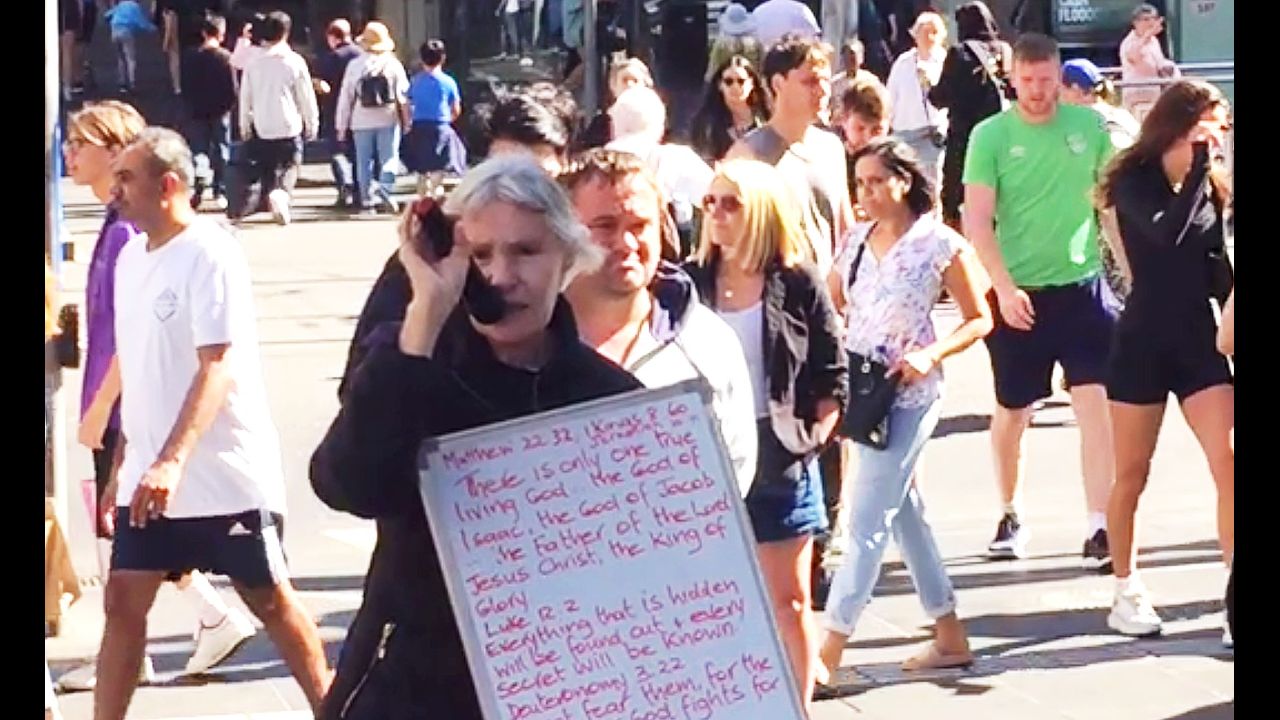 Matthew 22 32, 1 Kings 8 60
There is only one true
living God. the God of
Isaac: the God of Jacob
the Father of the Lord
Jesus Christ, the King of
Glory
Luke 12 2
Everything that is hidden
will be found out & every
secret will be known.
Deuteronomy 3.22
fear them, for the
God fights for